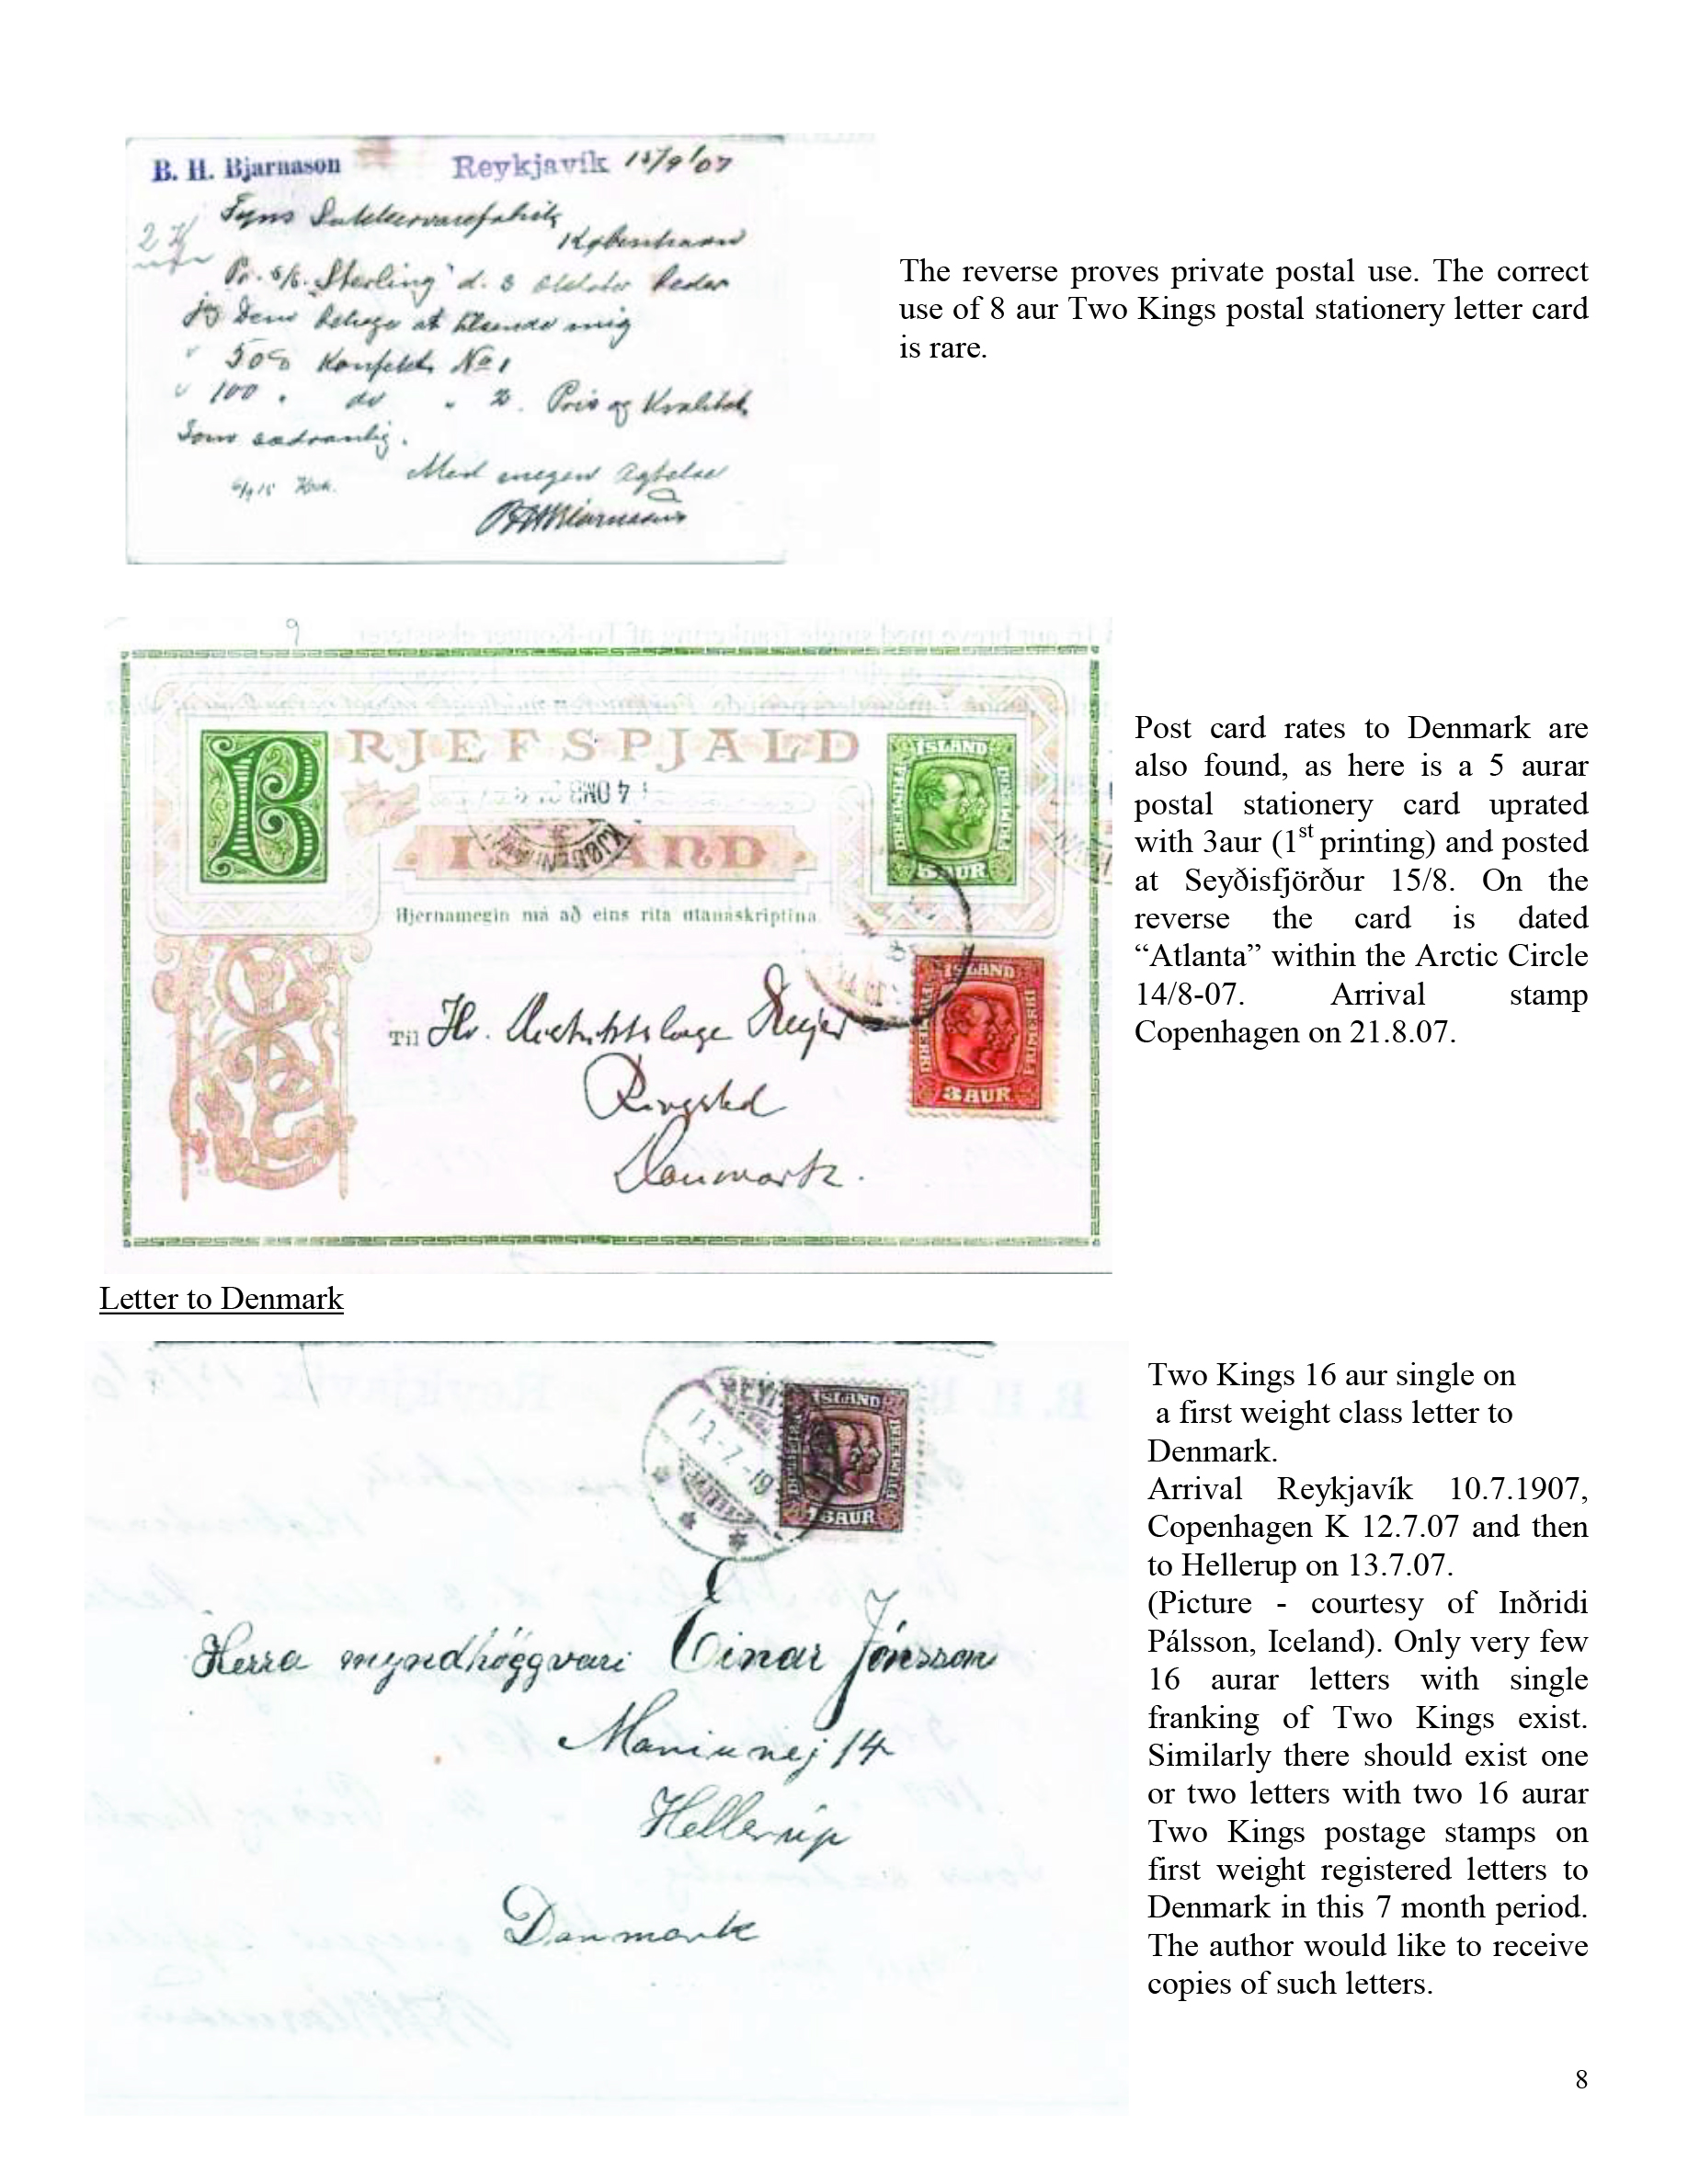 B. H. Bjarnason Reykjavík 15/9 '07
Fyns Sukkervarefabrik,
København
2
Pr. s/s. „Sterling" d. 3 Oktober beder
jeg Dem behage at tilsende mig
" 500 Konfekt, No 1
" 100 " do " 2. Pris og Kvalitet,
Som sædvanlig.
Med megen Agtelse
BHBjarnason
The reverse proves private postal use. The correct
use of 8 aur Two Kings postal stationery letter card
is rare.
9
BRJEFSPJALD
ÍSLAND
ÍSLAND
FRIMERKI
5 AUR
KJØBENHAVN
Hjernamegin má að eins rita utanáskriptina.
ÍSLAND
FRIMERKI
3 AUR
Til Hr.
Ringsted
Danmark.
Post card rates to Denmark are
also found, as here is a 5 aurar
postal stationery card uprated
with 3aur (1st printing) and posted
at Seyðisfjörður 15/8. On the
reverse the card is dated
“Atlanta” within the Arctic Circle
14/8-07. Arrival stamp
Copenhagen on 21.8.07.
Letter to Denmark
ÍSLAND
FRIMERKI
16 AUR
Herra myndhöggvari Einar Jónsson
14
Hellerup
Danmark
Two Kings 16 aur single on
a first weight class letter to
Denmark.
Arrival Reykjavík 10.7.1907,
Copenhagen K 12.7.07 and then
to Hellerup on 13.7.07.
(Picture - courtesy of Inðridi
Pálsson, Iceland). Only very few
16 aurar letters with single
franking of Two Kings exist.
Similarly there should exist one
or two letters with two 16 aurar
Two Kings postage stamps on
first weight registered letters to
Denmark in this 7 month period.
The author would like to receive
copies of such letters.
8